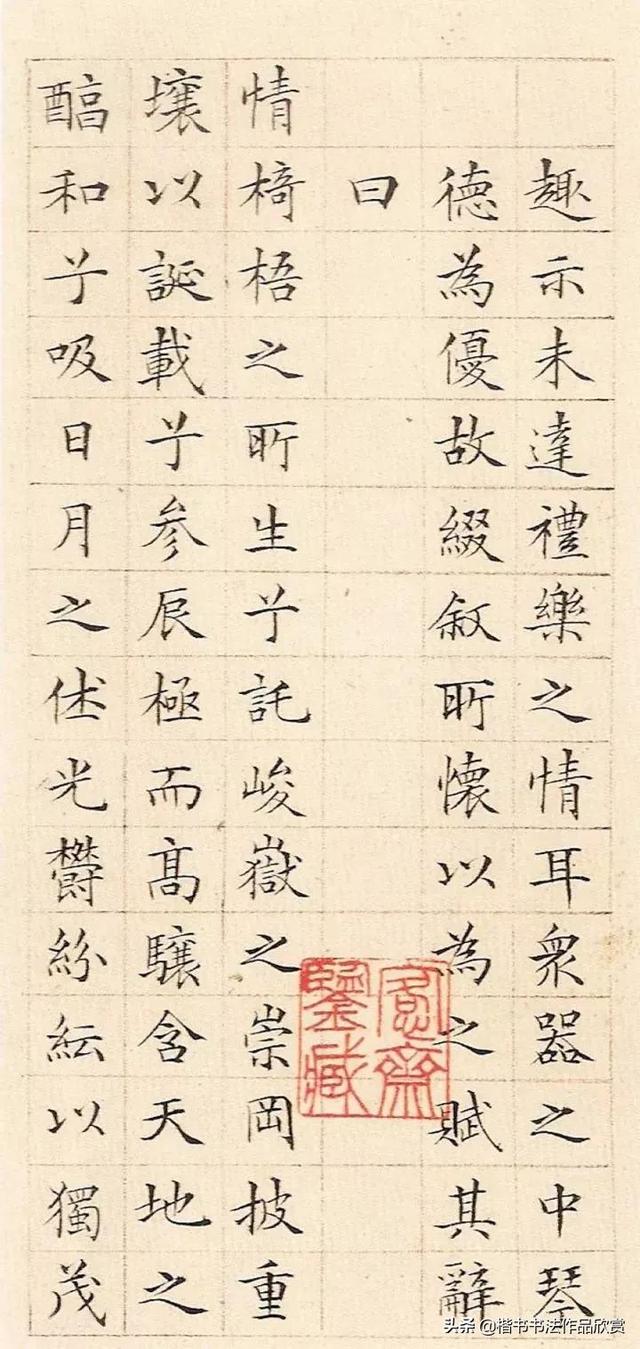 趣示未達禮樂之情耳衆器之中琴
德為優故綴敘所懷以為之賦其辭
曰
情椅梧之所生兮託峻嶽之崇岡披重
壤以誕載兮參辰極而髙驤含天地之
醕和兮吸日月之休光鬱紛紜以獨茂
愙齋
鑒藏
头条 @楷书书法作品欣赏